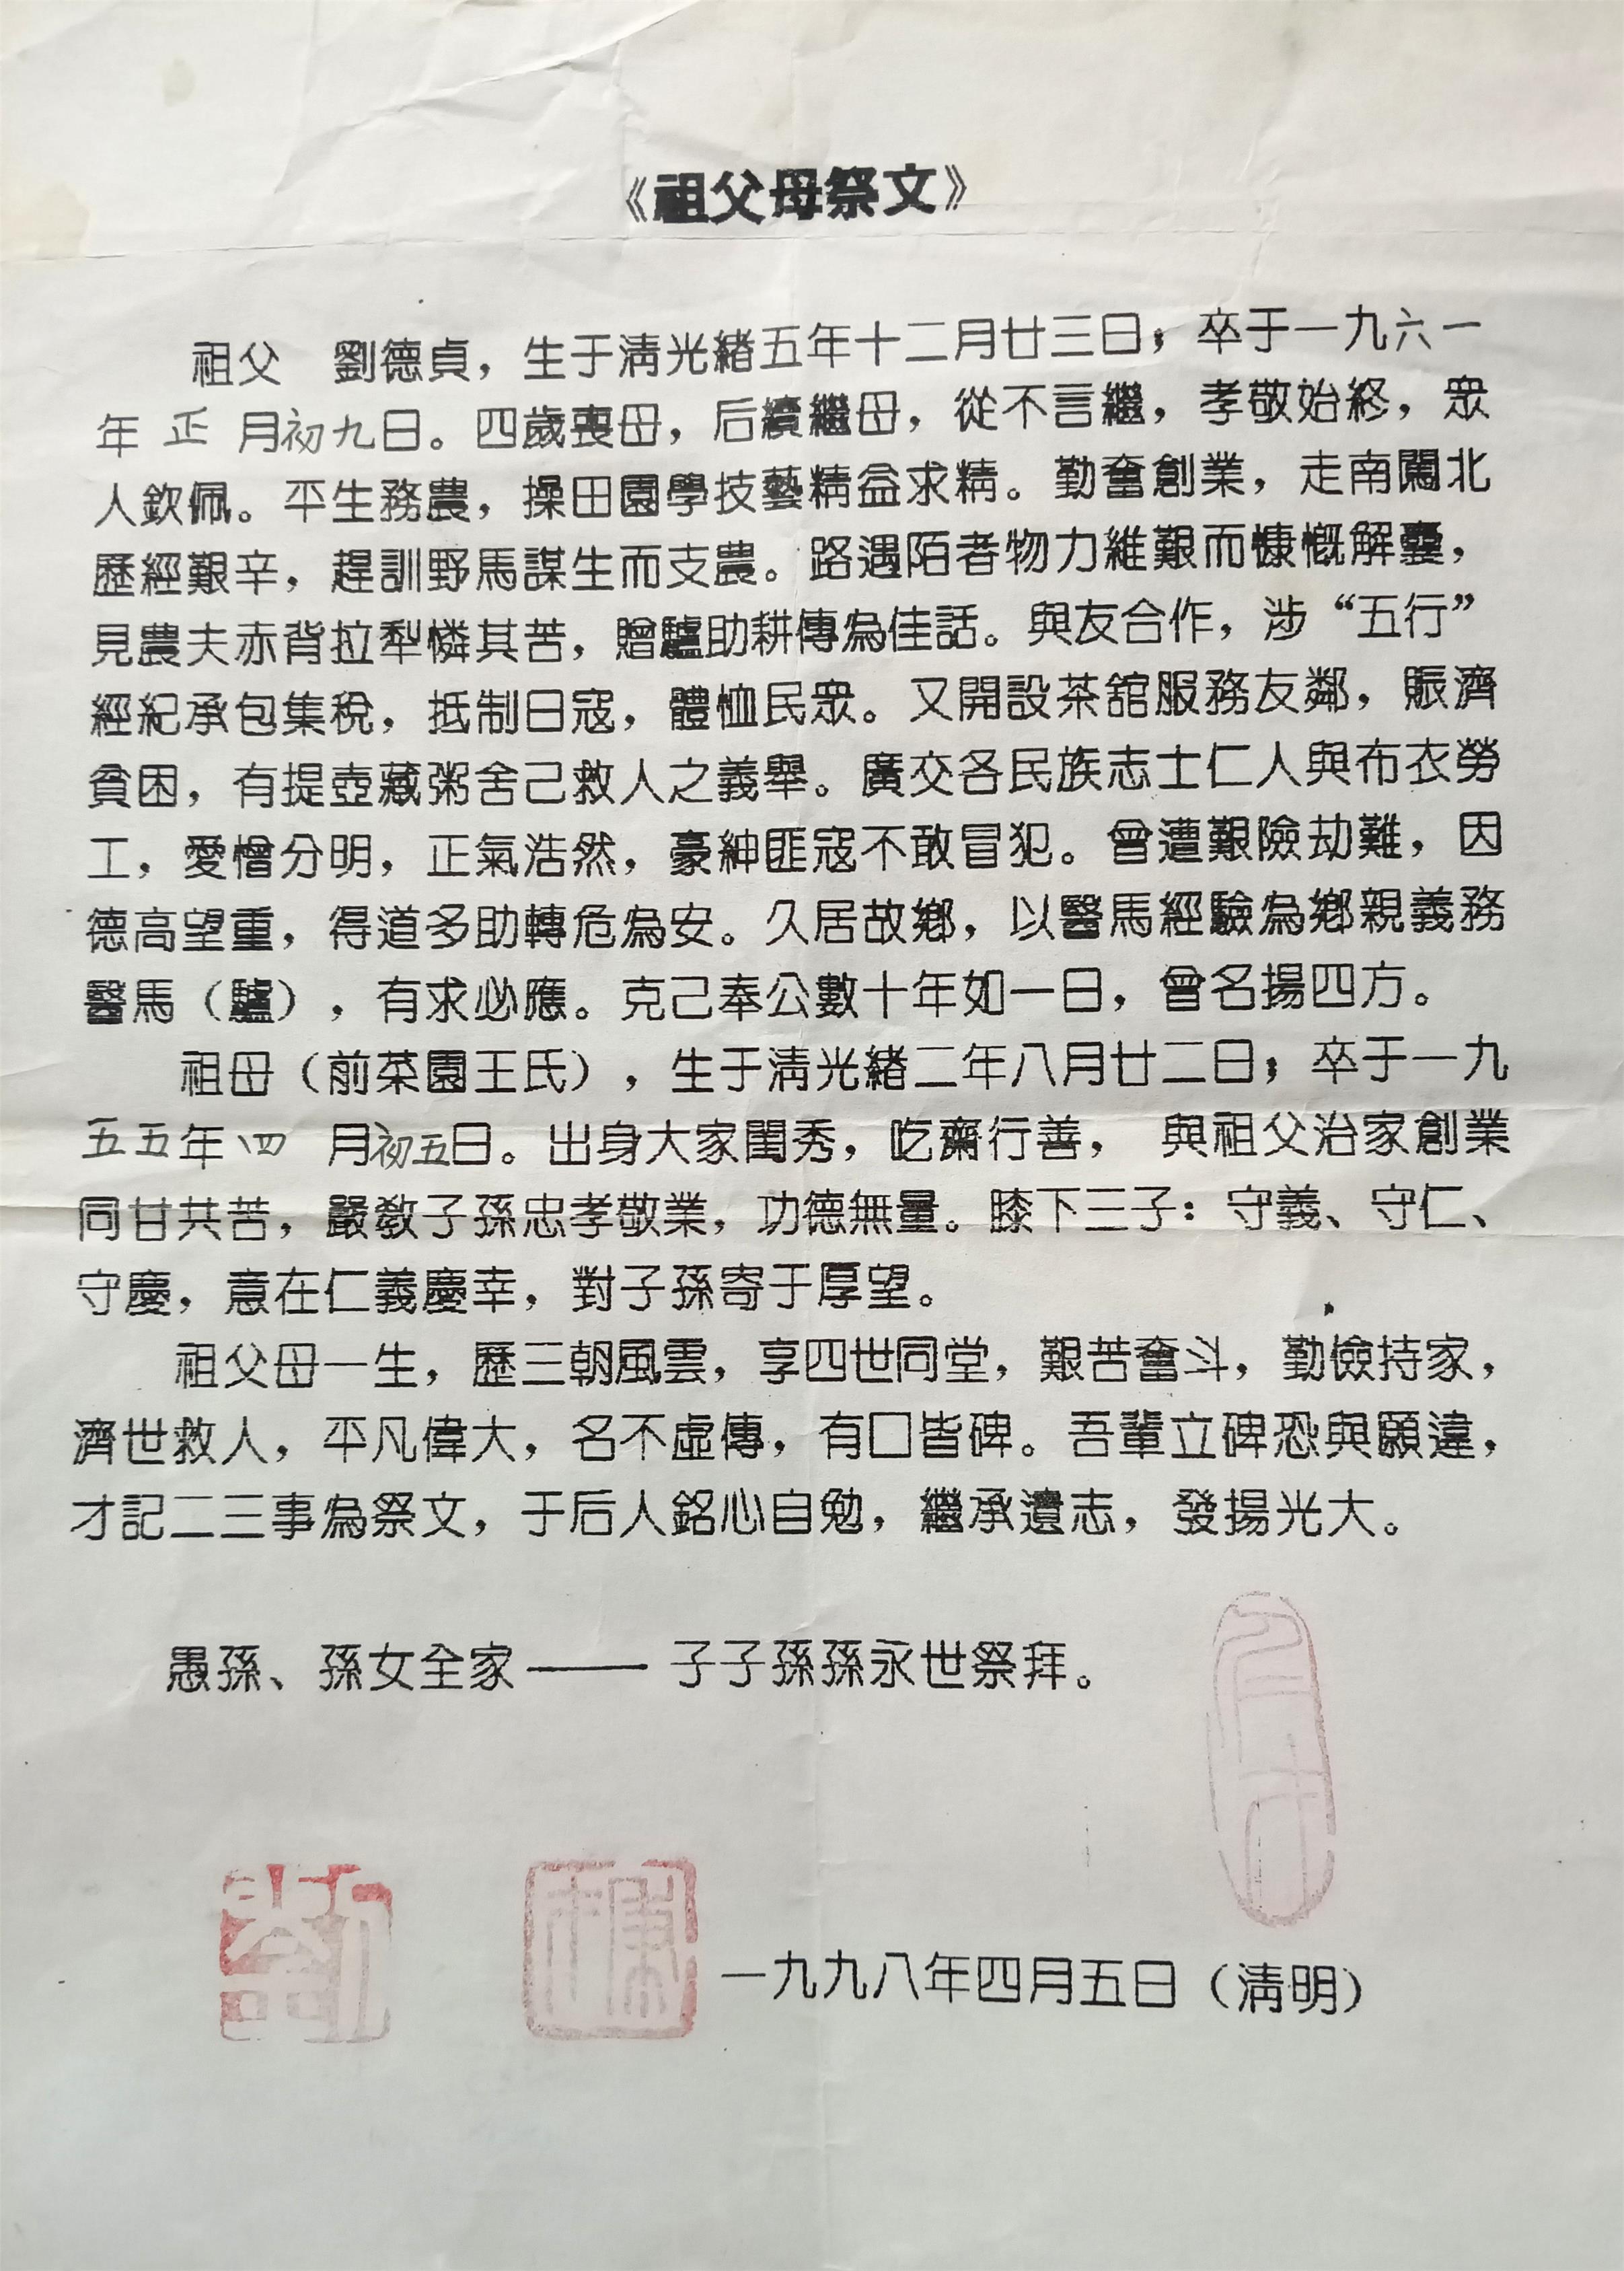 《祖父母祭文》
祖父　劉德貞，生于清光緒五年十二月廿三日；卒于一九六一
年正月初九日。四歲喪母，后續繼母，從不言繼，孝敬始終，眾
人欽佩。平生務農，操田園學技藝精益求精。勤奮創業，走南闖北
歷經艱辛，趕訓野馬謀生而支農。路遇陌者物力維艱而慷慨解囊，
見農夫赤背拉犁憐其苦，贈驢助耕傳為佳話。與友合作，涉“五行”
經紀承包集稅，抵制日寇，體恤民眾。又開設茶舘服務友鄰，賑濟
貧困，有提壺藏粥舍己救人之義舉。廣交各民族志士仁人與布衣勞
工，愛憎分明，正氣浩然，豪紳匪寇不敢冒犯。曾遭艱險劫難，因
德高望重，得道多助轉危為安。久居故鄉，以醫馬經驗為鄉親義務
醫馬（驢），有求必應。克己奉公數十年如一日，曾名揚四方。
祖母（前菜園王氏），生于清光緒二年八月廿二日；卒于一九
五五年四月初五日。出身大家閨秀，吃齋行善，與祖父治家創業
同甘共苦，嚴教子孫忠孝敬業，功德無量。膝下三子：守義、守仁、
守慶，意在仁義慶幸，對子孫寄于厚望。
祖父母一生，歷三朝風雲，享四世同堂，艱苦奮斗，勤儉持家，
濟世救人，平凡偉大，名不虛傳，有口皆碑。吾輩立碑恐與願違，
才記二三事為祭文，于后人銘心自勉，繼承遺志，發揚光大。
愚孫、孫女全家——子子孫孫永世祭拜。
劉
一九九八年四月五日（清明）